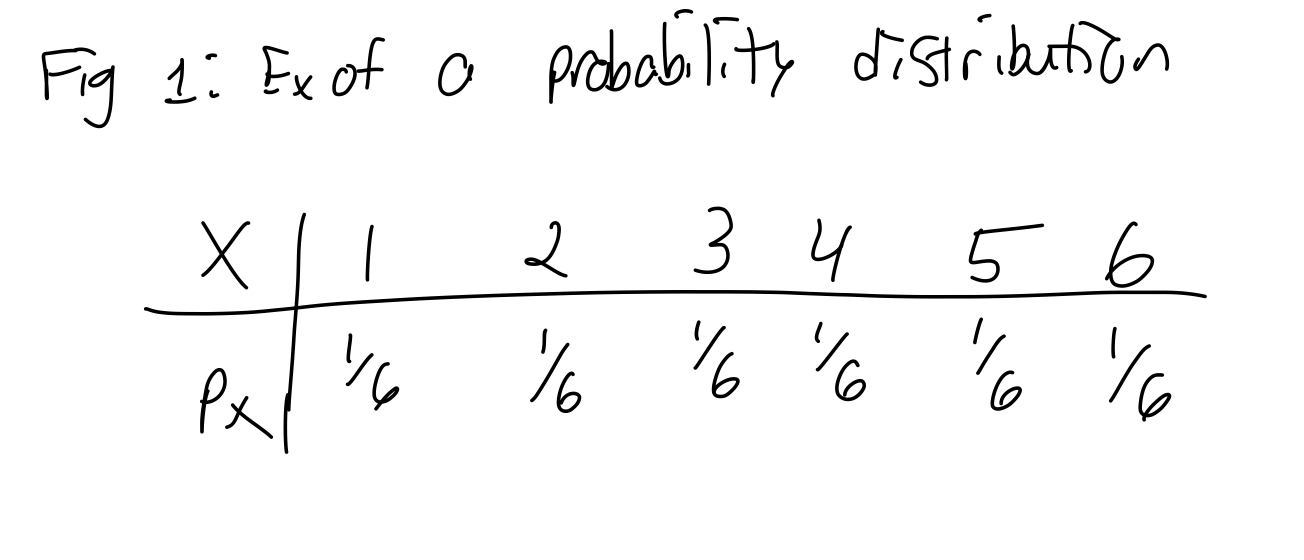 Fig 1: Ex of a probability distribution
X 1 2 3 4 5 6
Px 1/6 1/6 1/6 1/6 1/6 1/6